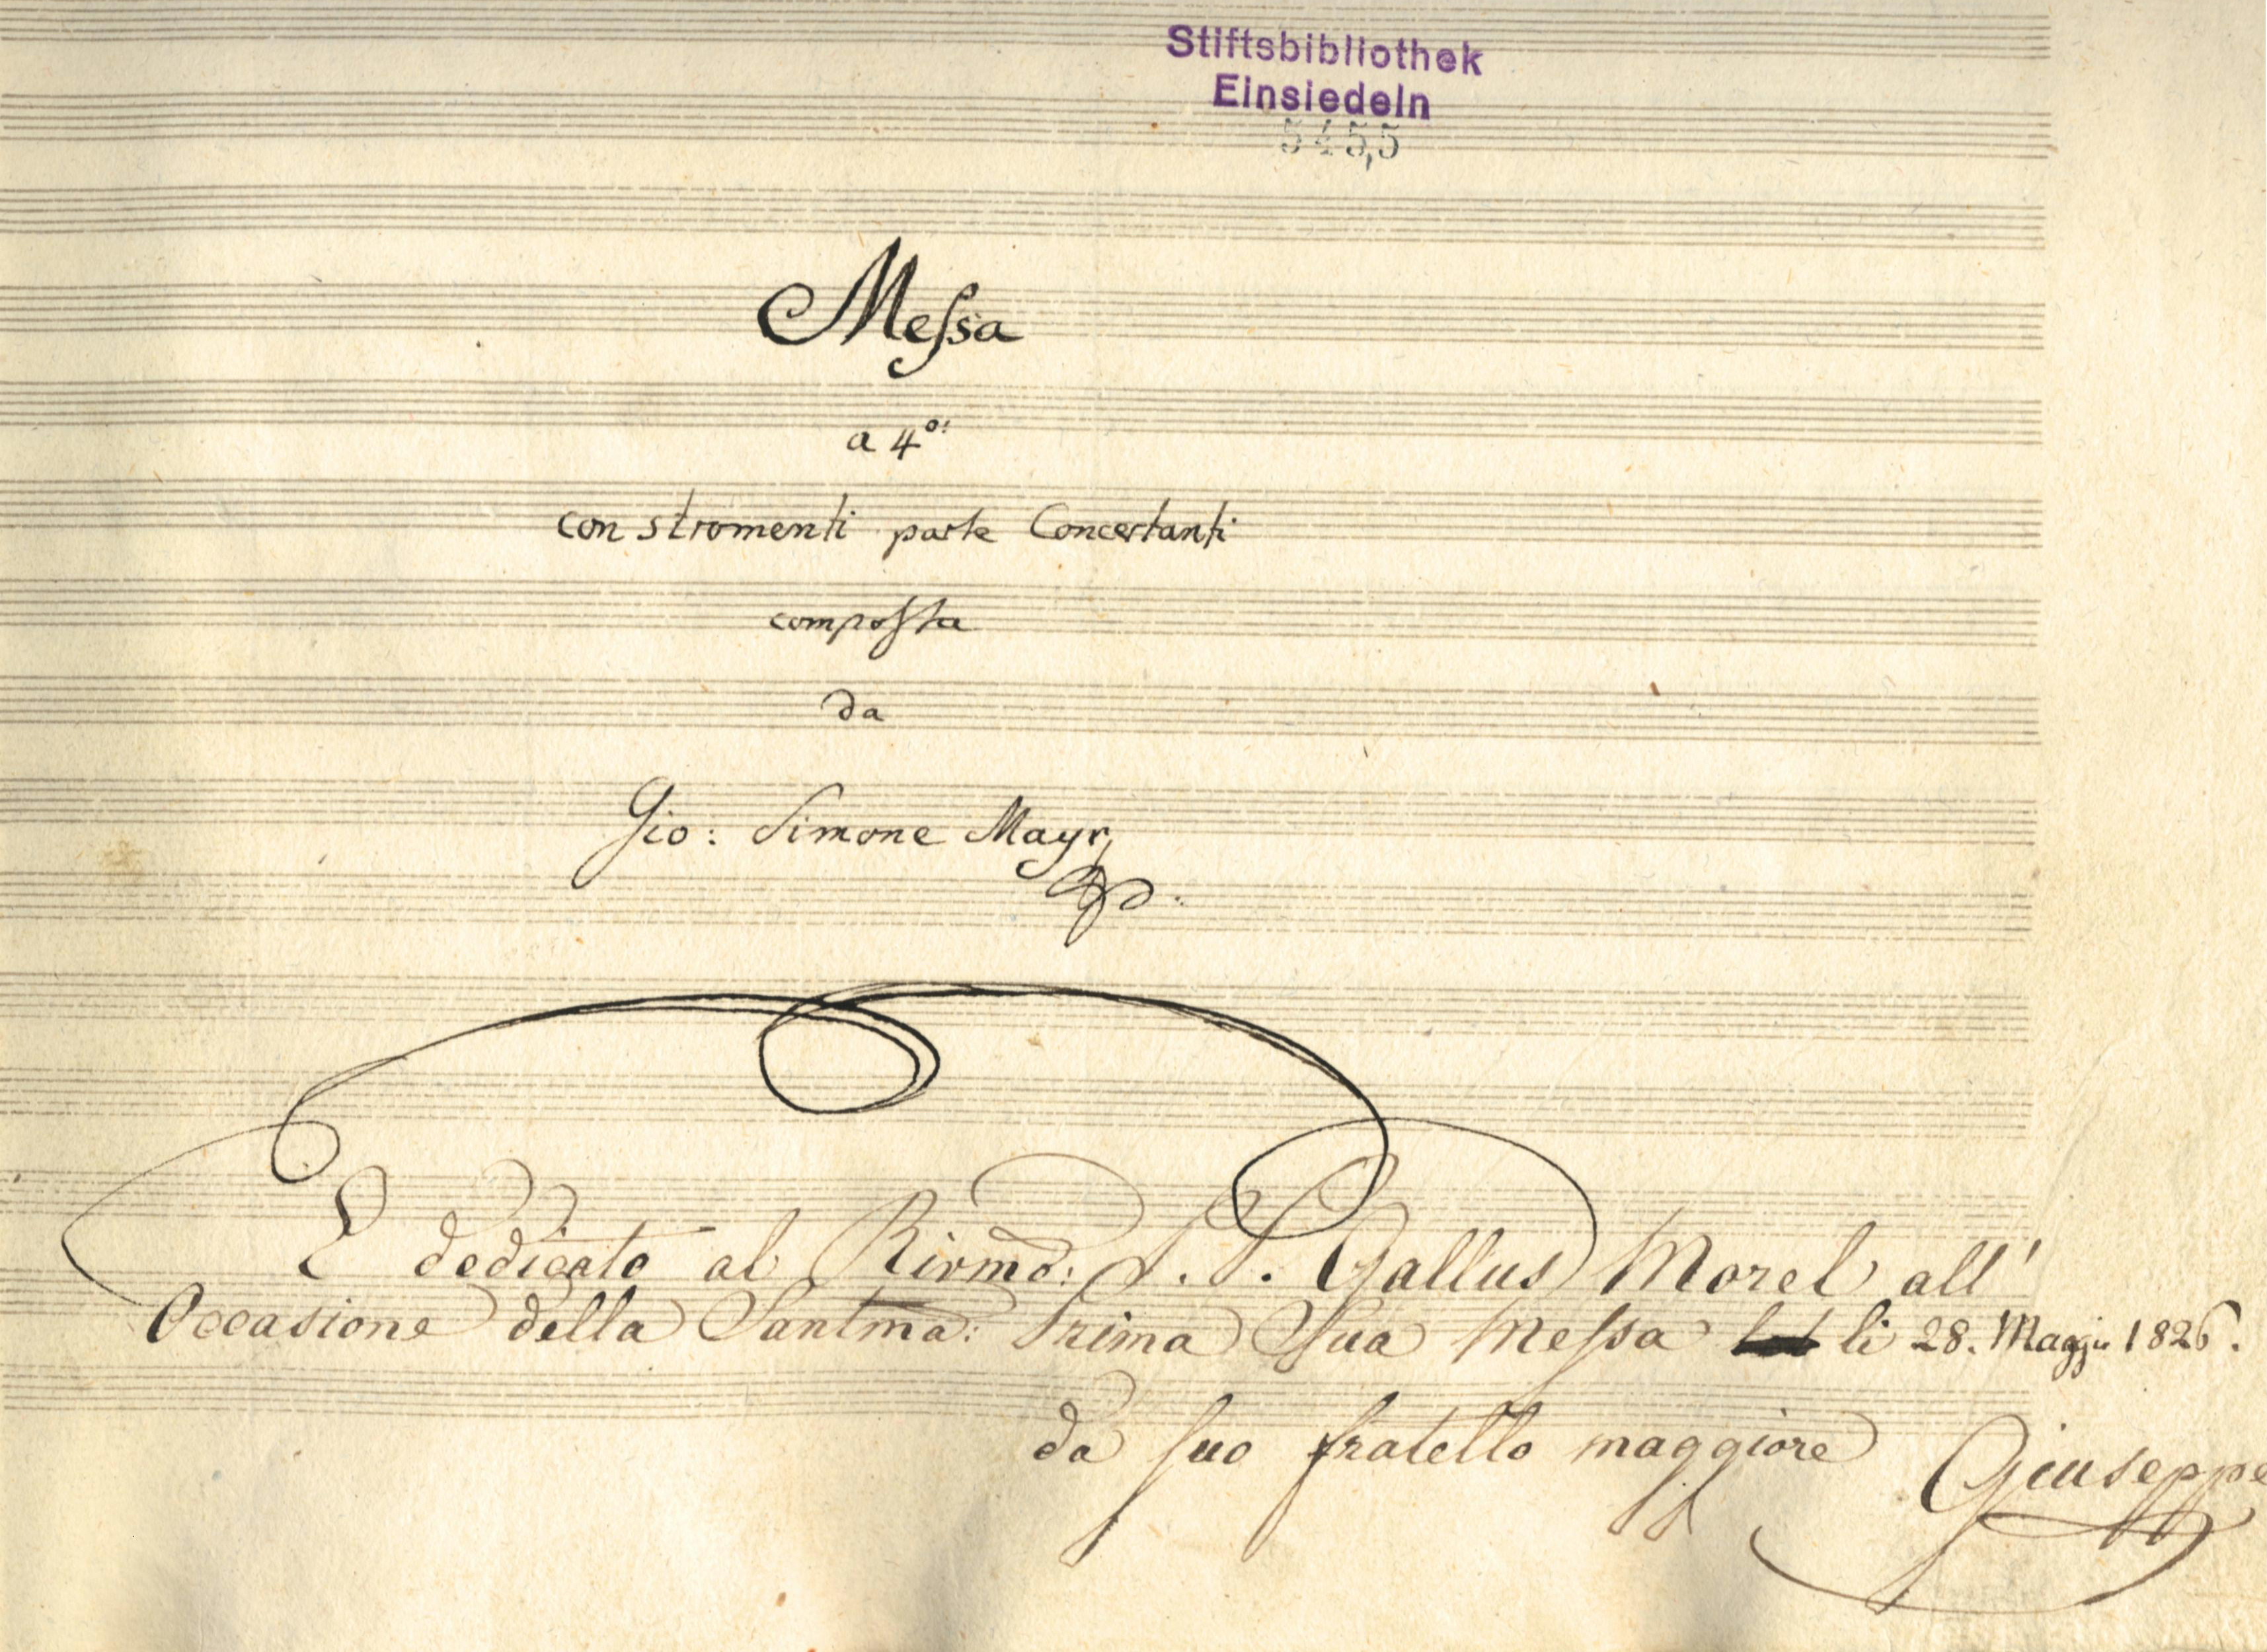 Stiftsbibliothek
Einsiedeln
545,5
Meſsa
a 4.º:
con stromenti parte Concertanti
compoſta
da
Gio: Simone Mayr
E dedicata al Rivmo: P. P. Gallus Morel all'
Occasione della Santma: Prima Sua Meſsa li 28. Maggio 1826.
da suo fratello maggiore Giuseppe